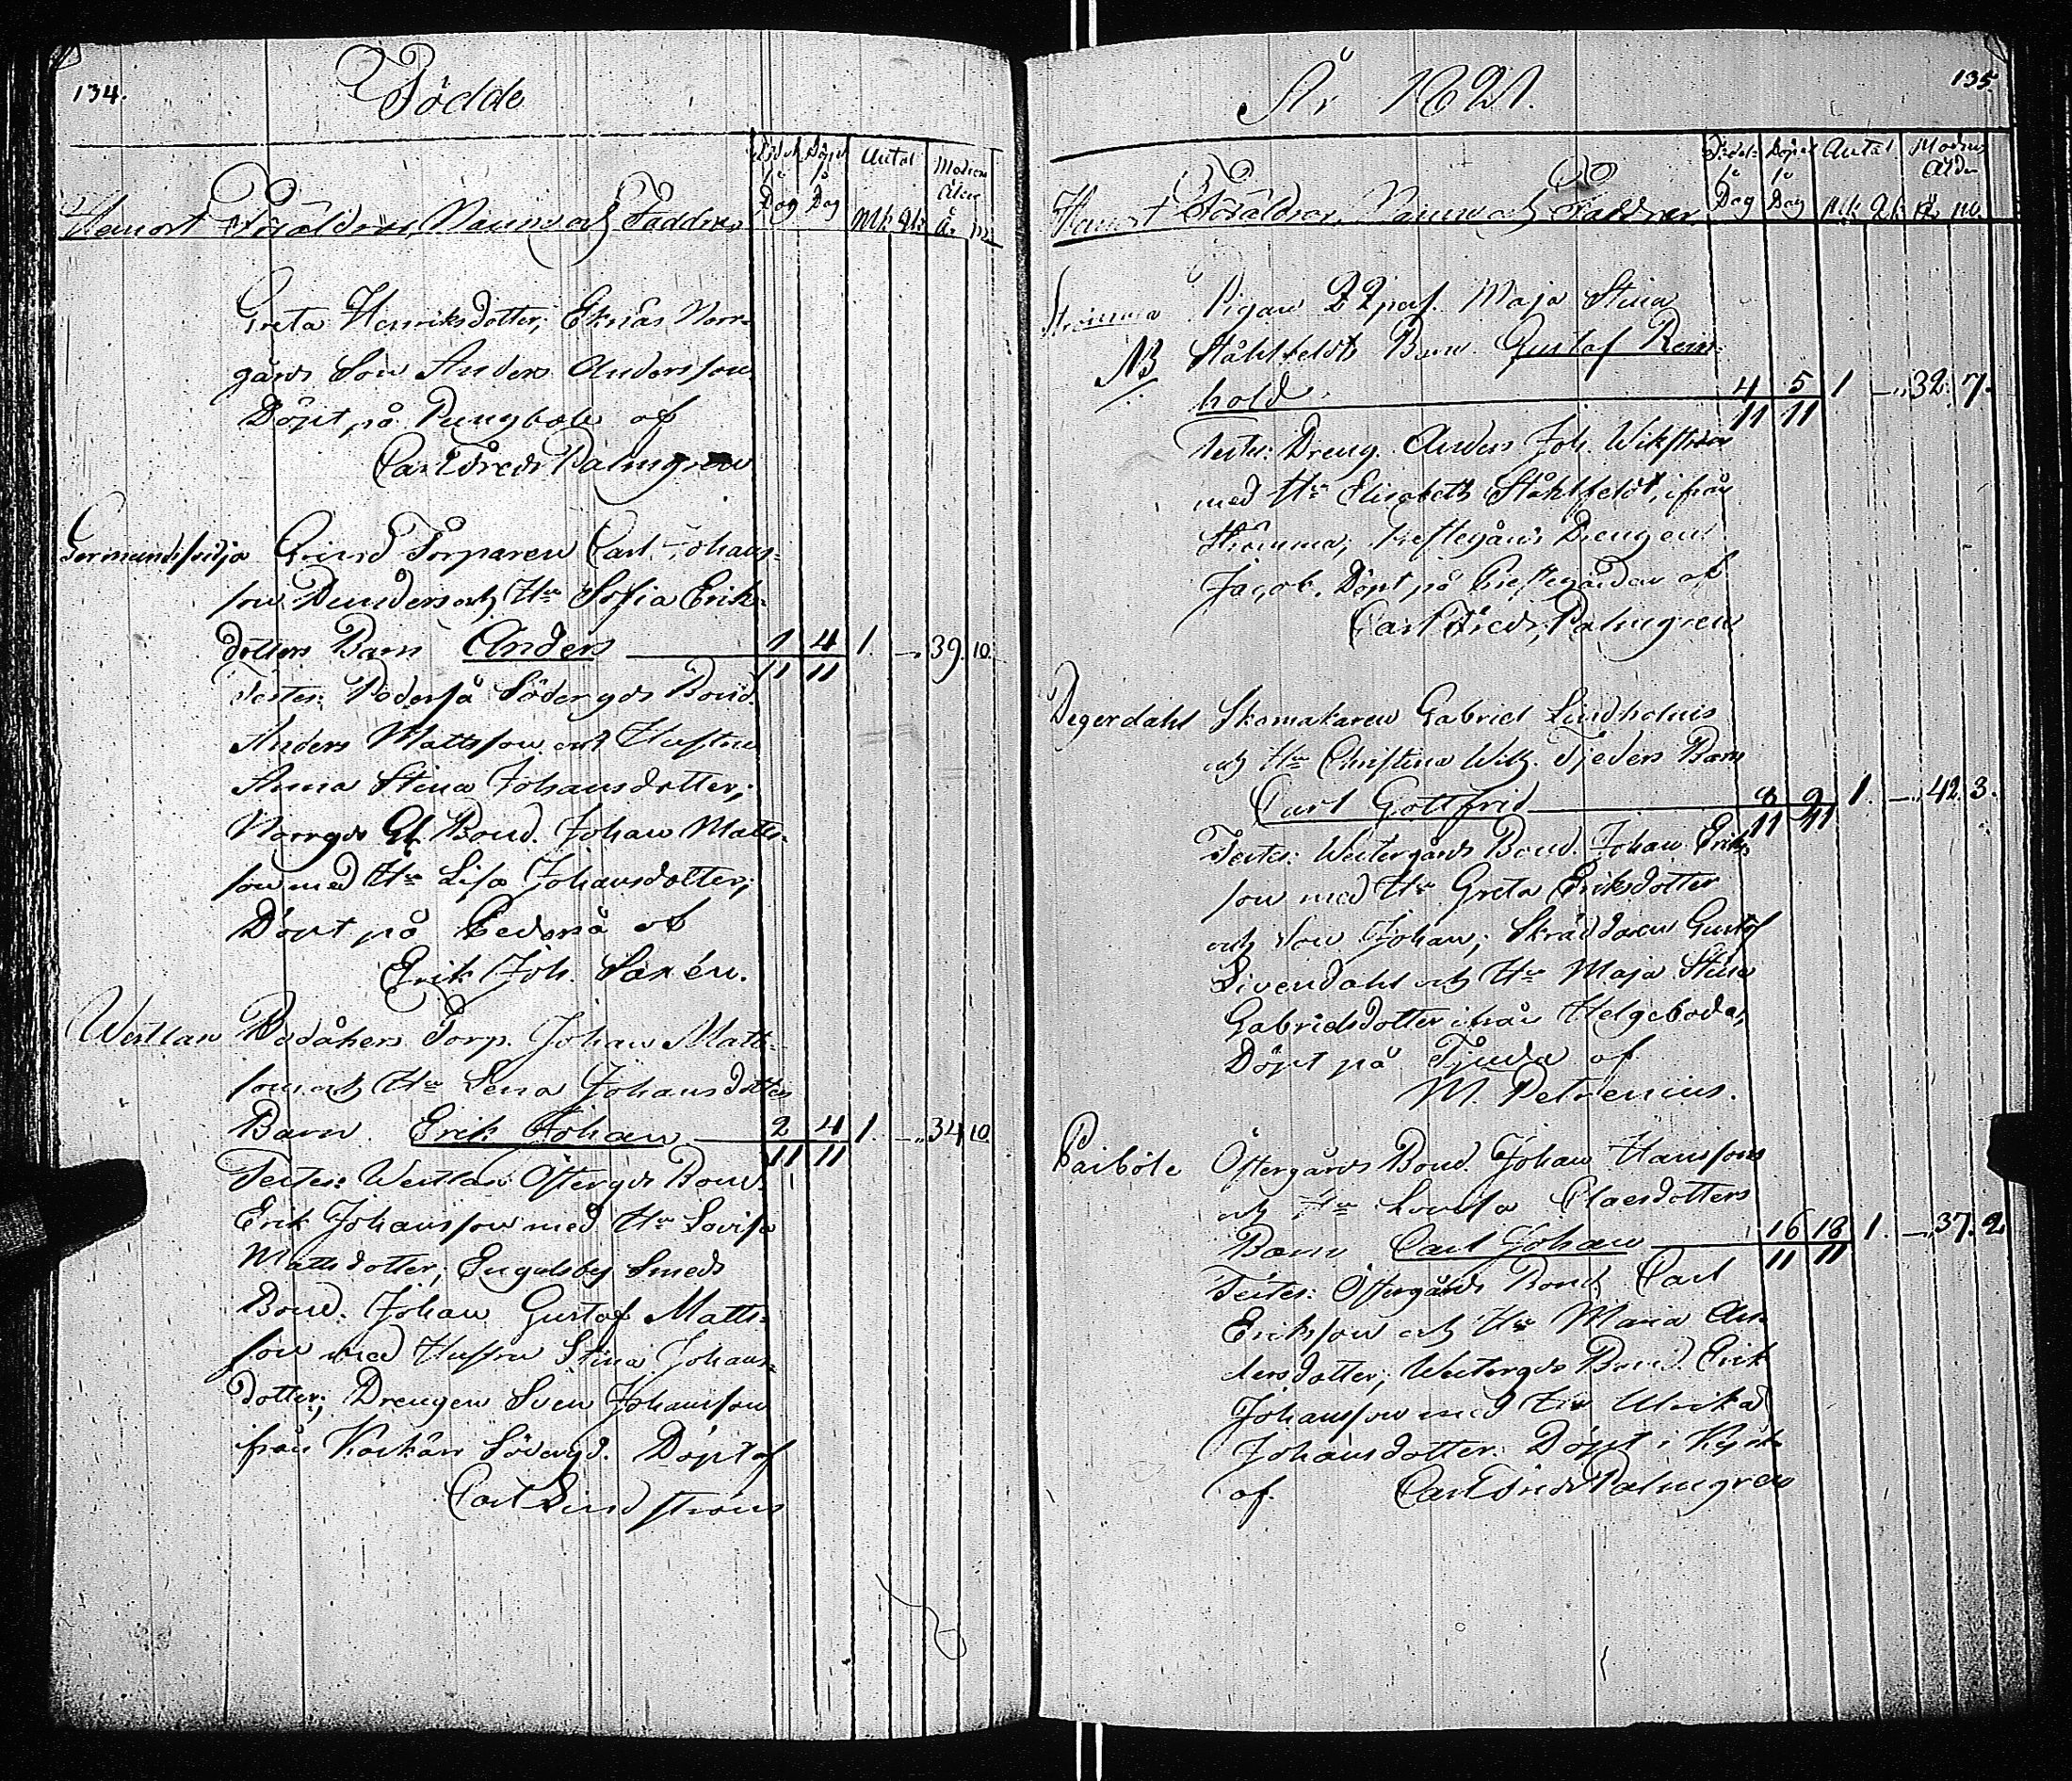 134.
Födde
Födde Döpt Antal Moders
På På Ålder
Dag Dag Mk. Qk. Å. M.
Hemort Föräldrar, Namn och Faddrar
Greta Henriksdotter, Eknäs Norr-
gårds Son Anders Andersson.
Döpt på Pungböle af
Carl Fredr. Palmgren
Germundssvidja Grind Torparen Carl Johans-
son Dunders och Hu Sofia Erik-
dotters Barn Anders 1 4 1. -„ 39. 10.
11 11
Testes: Pederså Södergds Bond.
Anders Mattsson och Hustru
Anna Stina Johansdotter;
Norrgds Gl. Bond. Johan Matts-
son med Hu Lisa Johansdotter;
Döpt på Pederså af
Erik Joh. Saxén.
Westlax Bodåkers Torp. Johan Matts-
son och Hu Lena Johansdotters
Barn Erik Johan 2 4 1. -„ 34 10
11 11
Testes: Westlax Östergds Bond.
Erik Johansson med Hu Lovisa
Mattsdotter, Engelsby Smeds
Bond. Johan Gustaf Matts-
son med Hustru Stina Johans-
dotter; Drengen Sven Johansson
från Kärkärr Södergd. Döpt af
Carl Lindström
135.
År 1821.
Födde Döpt Antal Moders
På På Ålder
Dag Dag Mk. Qk. Å. M.
Hemort Föräldrar, Namn och Faddrar
Strömma Pigan Maja Stina
NB Ståhlfeldts Barn Gustaf Rein-
hold 4 5 1 -„ 32. 7.
11 11
Testes: Dreng. Anders Joh. Wikström
med Hu Elisabeth Ståhlfeldt, ifrån
Strömma, Prestegårds Drengen
Jacob. Döpt på Prestegården af
Carl Fredr. Palmgren
Degerdahl Skomakaren Gabriel Lindholms
och Hu Christina Wilh. Tjeders Barn
Carl Gottfrid 8 9 1. -„ 42. 3.
11 11
Testes: Westergårds Bond. Johan Eriks-
son med Hu Greta Eriksdotter
och Son Johan; Skräddaren Gustaf
Sivendahl och Hu Maja Stina
Gabrielsdotter ifrån Helgeboda,
Döpt på Tjuda af
M. Petrenius.
Paiböle Östergårds Bond. Johan Hanssons
och Hu Lovisa Claesdotters
Barn Carl Johan 16 18 1. -„ 37. 2
11 11
Testes: Östergårds Bond. Carl
Eriksson och Hu Maria An-
dersdotter; Westergds Bond. Erik
Johansson med Hu Ulrika
Johansdotter. Döpt i Kyrk.
af Carl Fredr. Palmgren